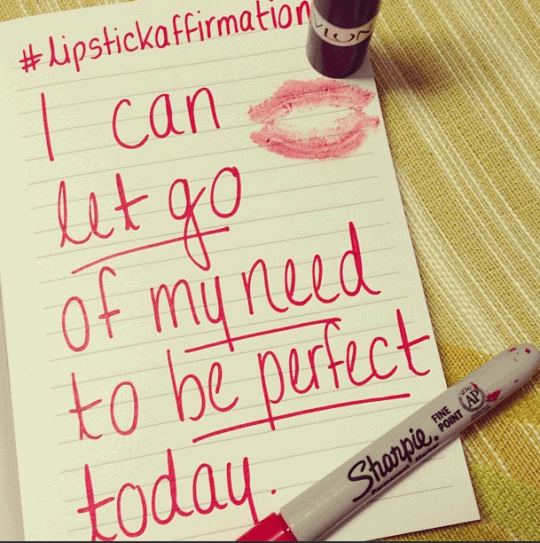 #lipstickaffirmation
I can
let go
of my need
to be perfect
today.
Sharpie.
FINE
POINT
AP